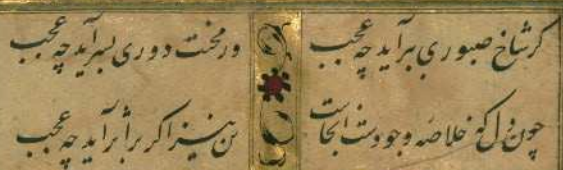 کر شاخ صبوری ببرآید چه عجب
ور محنت دوری بسرآید چه عجب
چون دل که خلاصه وجودست آنجاست
تن نیز اکر براثر آید چه عجب